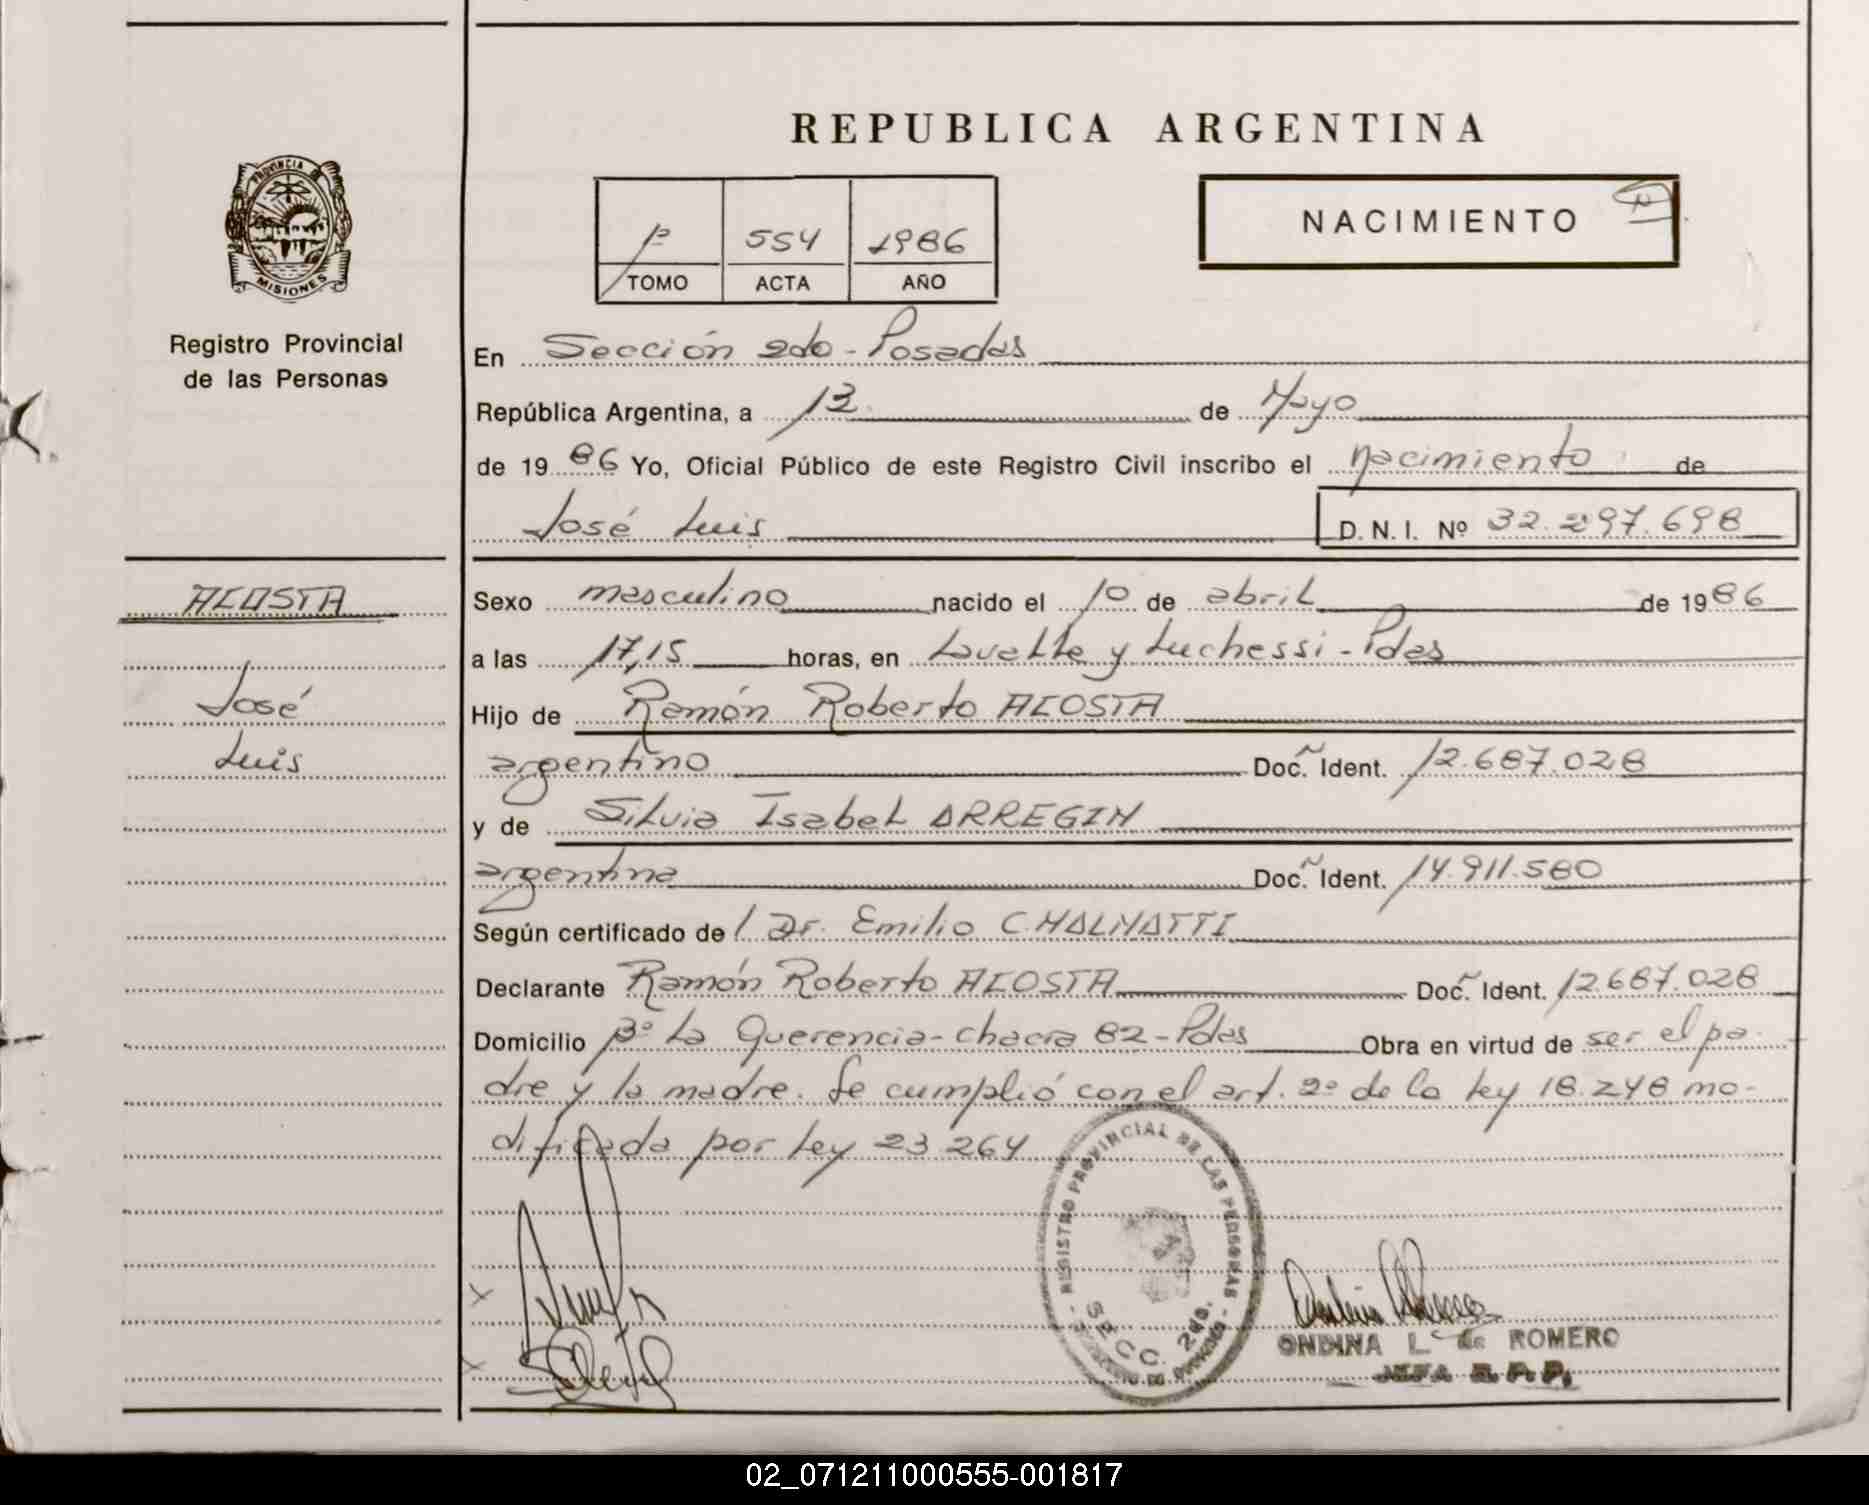 REPUBLICA ARGENTINA
PROVINCIA DE
MISIONES
Registro Provincial
de las Personas
1º 554 1986
TOMO ACTA AÑO
NACIMIENTO
N
En Sección 2da - Posadas
República Argentina, a 13 de Mayo
de 1986 Yo, Oficial Público de este Registro Civil inscribo el nacimiento de
José Luis D.N.I. Nº 32.297.698
ACOSTA
José
Luis
Sexo masculino nacido el 10 de abril de 1986
a las 17,15 horas, en Lavalle y Luchessi - Pdas
Hijo de Ramón Roberto ACOSTA
argentino Doc. Ident. 12.687.028
y de Silvia Isabel ARREGIN
argentina Doc. Ident. 14.911.580
Según certificado de Dr. Emilio CHALMATTI
Declarante Ramón Roberto ACOSTA Doc. Ident. 12.687.028
Domicilio Bº La Querencia - chacra 82 - Pdas Obra en virtud de ser el pa-
dre y la madre. Se cumplió con el art. 2º de la ley 18.248 mo-
dificada por ley 23.264
REGISTRO PROVINCIAL DE LAS PERSONAS
SECC. 2da.
ONDINA L. de ROMERO
JEFA R.P.P.
02_071211000555-001817